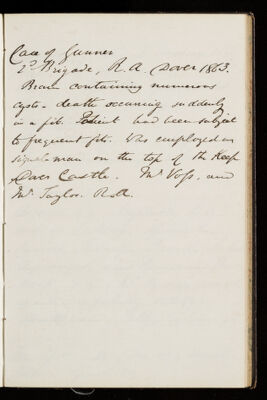 Case of Gunner
2d Brigade, R.A. Dover 1863.
Brain containing numerous
cysts - death occurring suddenly
in a fit. Patient had been subject
to frequent fits. Was employed as
signalsman on the top of the Keep
Dover Castle. Mr Voss, and
Mr Taylor. R.A.